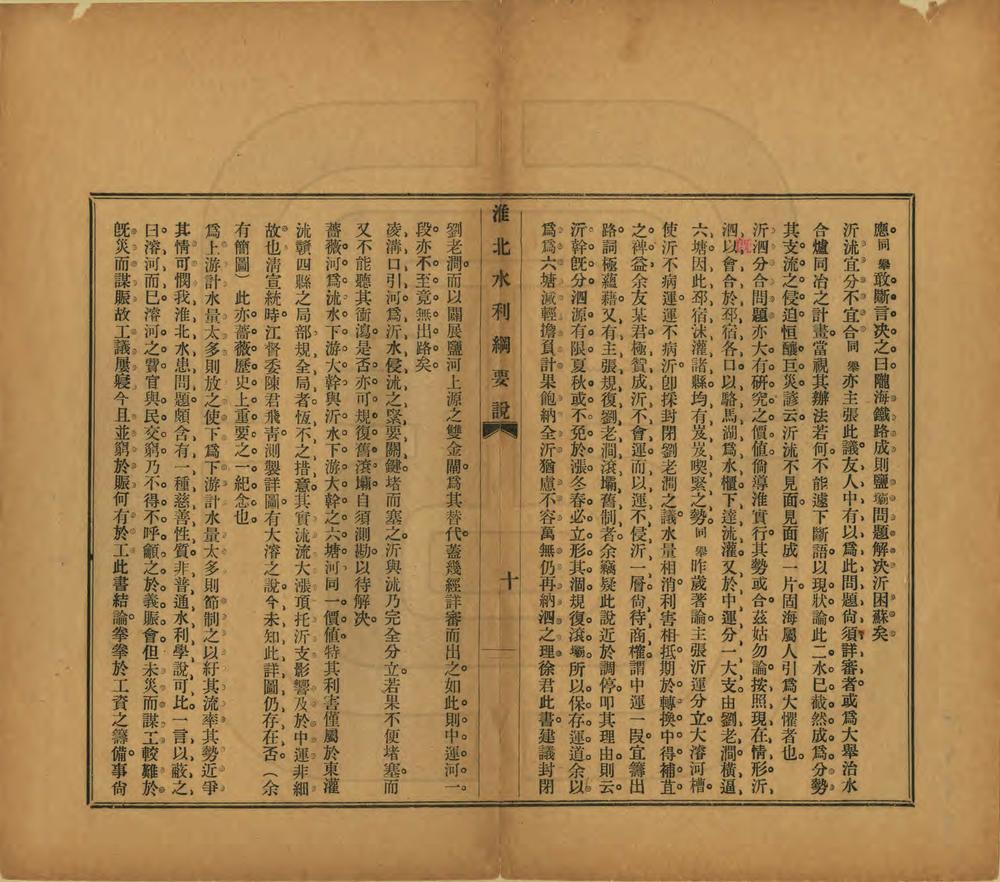 應同舉敢斷言決之曰隴海鐵路成則鹽壩問題解決沂困蘇矣
沂沭宜分不宜合同舉亦主張此議友人中有以爲此問題尙須詳審者或爲大舉治水
合爐同冶之計畫當視其辦法若何不能遽下斷語以現狀論此二水已截然成爲分勢
其支流之侵迫恒釀巨災諺云沂沭不見面見面成一片固海屬人引爲大懼者也
沂泗分合問題亦大有研究之價値倘導淮實行其勢或合茲姑勿論按照現在情形沂
泗以會合於邳宿各口以駱馬湖爲水櫃下達沭灌又於中運分一大支由劉老澗橫逼
六塘因此邳宿沭灌諸縣均有岌岌喫緊之勢同舉昨歲著論主張沂運分立大濬河槽
使沂不病運運不病沂卽採封閉劉老澗之議水量相消利害相抵期於轉換中得補苴
之裨益余友某君極贊成沂不會運而以運不侵沂一層尙待商榷謂中運一段宜籌出
路詞極蘊藉又有主張規復劉老澗滾壩舊制者余竊疑此說近於調停叩其理由則云
沂幹旣分泗源有限夏秋或不免於漲冬春必立形其涸規復滾壩所以保存運道余以
爲爲六塘減輕擔負計果能納全沂猶慮不容萬無仍再納泗之理徐君此書建議封閉
淮北水利綱要說
十
劉老澗而以闢展鹽河上源之雙金閘爲其替代蓋幾經詳審而出之如此則中運河一
段亦不至竟無出路矣
凌溝口引河爲沂水侵沭之緊要關鍵堵而塞之沂與沭乃完全分立若果不便堵塞而
又不能聽其衝瀉是否亦可規復舊滾壩自須測勘以待解決
薔薇河爲沭水下游大幹與沂水下游大幹之六塘河同一價值特其利害僅屬於東灌
沭贛四縣之局部規全局者恆不之措意其實沭流大漲項托沂支影響及於中運非細
故也淸宣統時江督委陳君飛靑測製詳圖有大濬之說今未知此詳圖仍存在否（余
有簡圖）此亦薔薇歷史上重要之一紀念也
爲上游計水量太多則放之使下爲下游計水量太多則節制之以紓其流率其勢近爭
其情可憫我淮北水患問題頗含有一種慈善性質非普通水利學說可比一言以蔽之
曰濬河而已濬河之費官與民交窮乃不得不呼籲之於義賑會但未災而謀工較難於
旣災而謀賑故工議屢寢今且並窮於賑何有於工此書結論拳拳於工資之籌備事尙